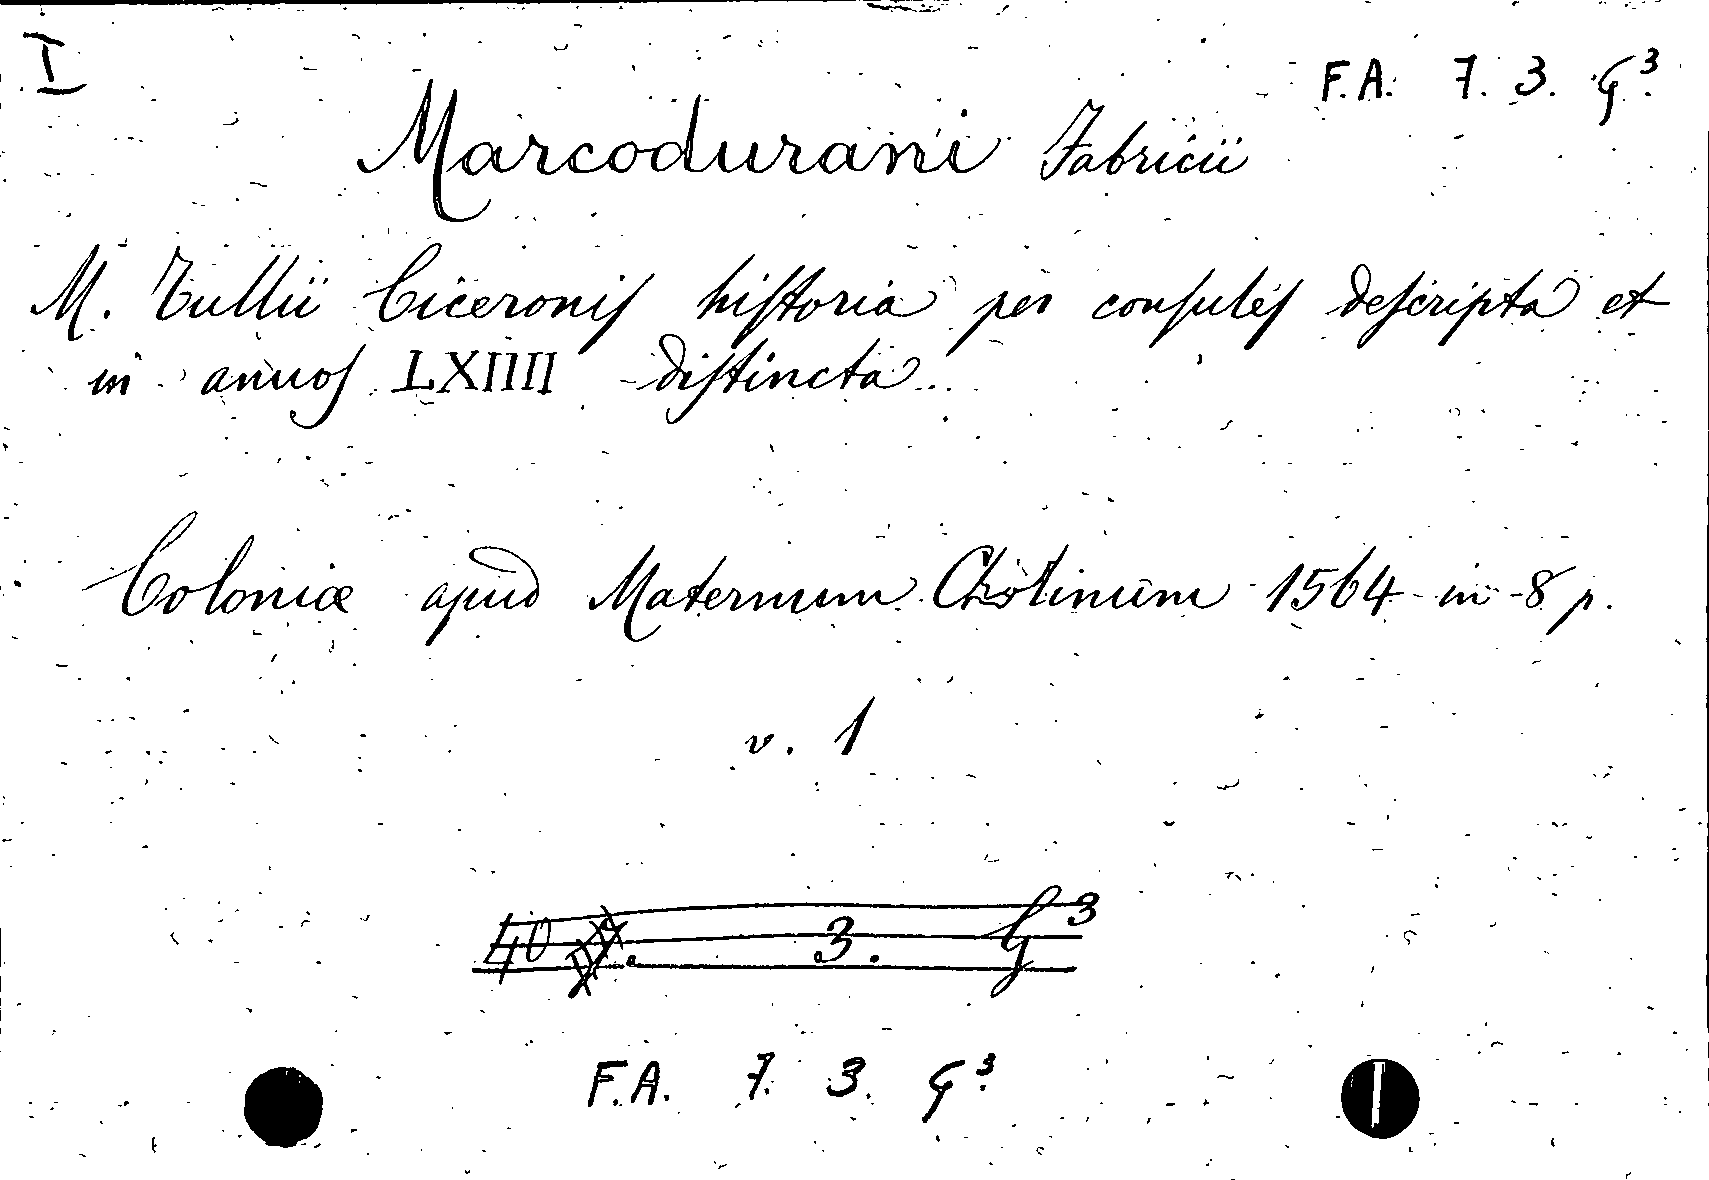 I
F.A. 7. 3. G³.
Marcodurani Fabricii
M. Tullii Ciceronis historia per consules descripta et
in annos LXIIII distincta...
Coloniæ apud Maternum Cholinum 1564 in-8 p.
v. 1
40 3. G³
F.A. 7. 3. G³.